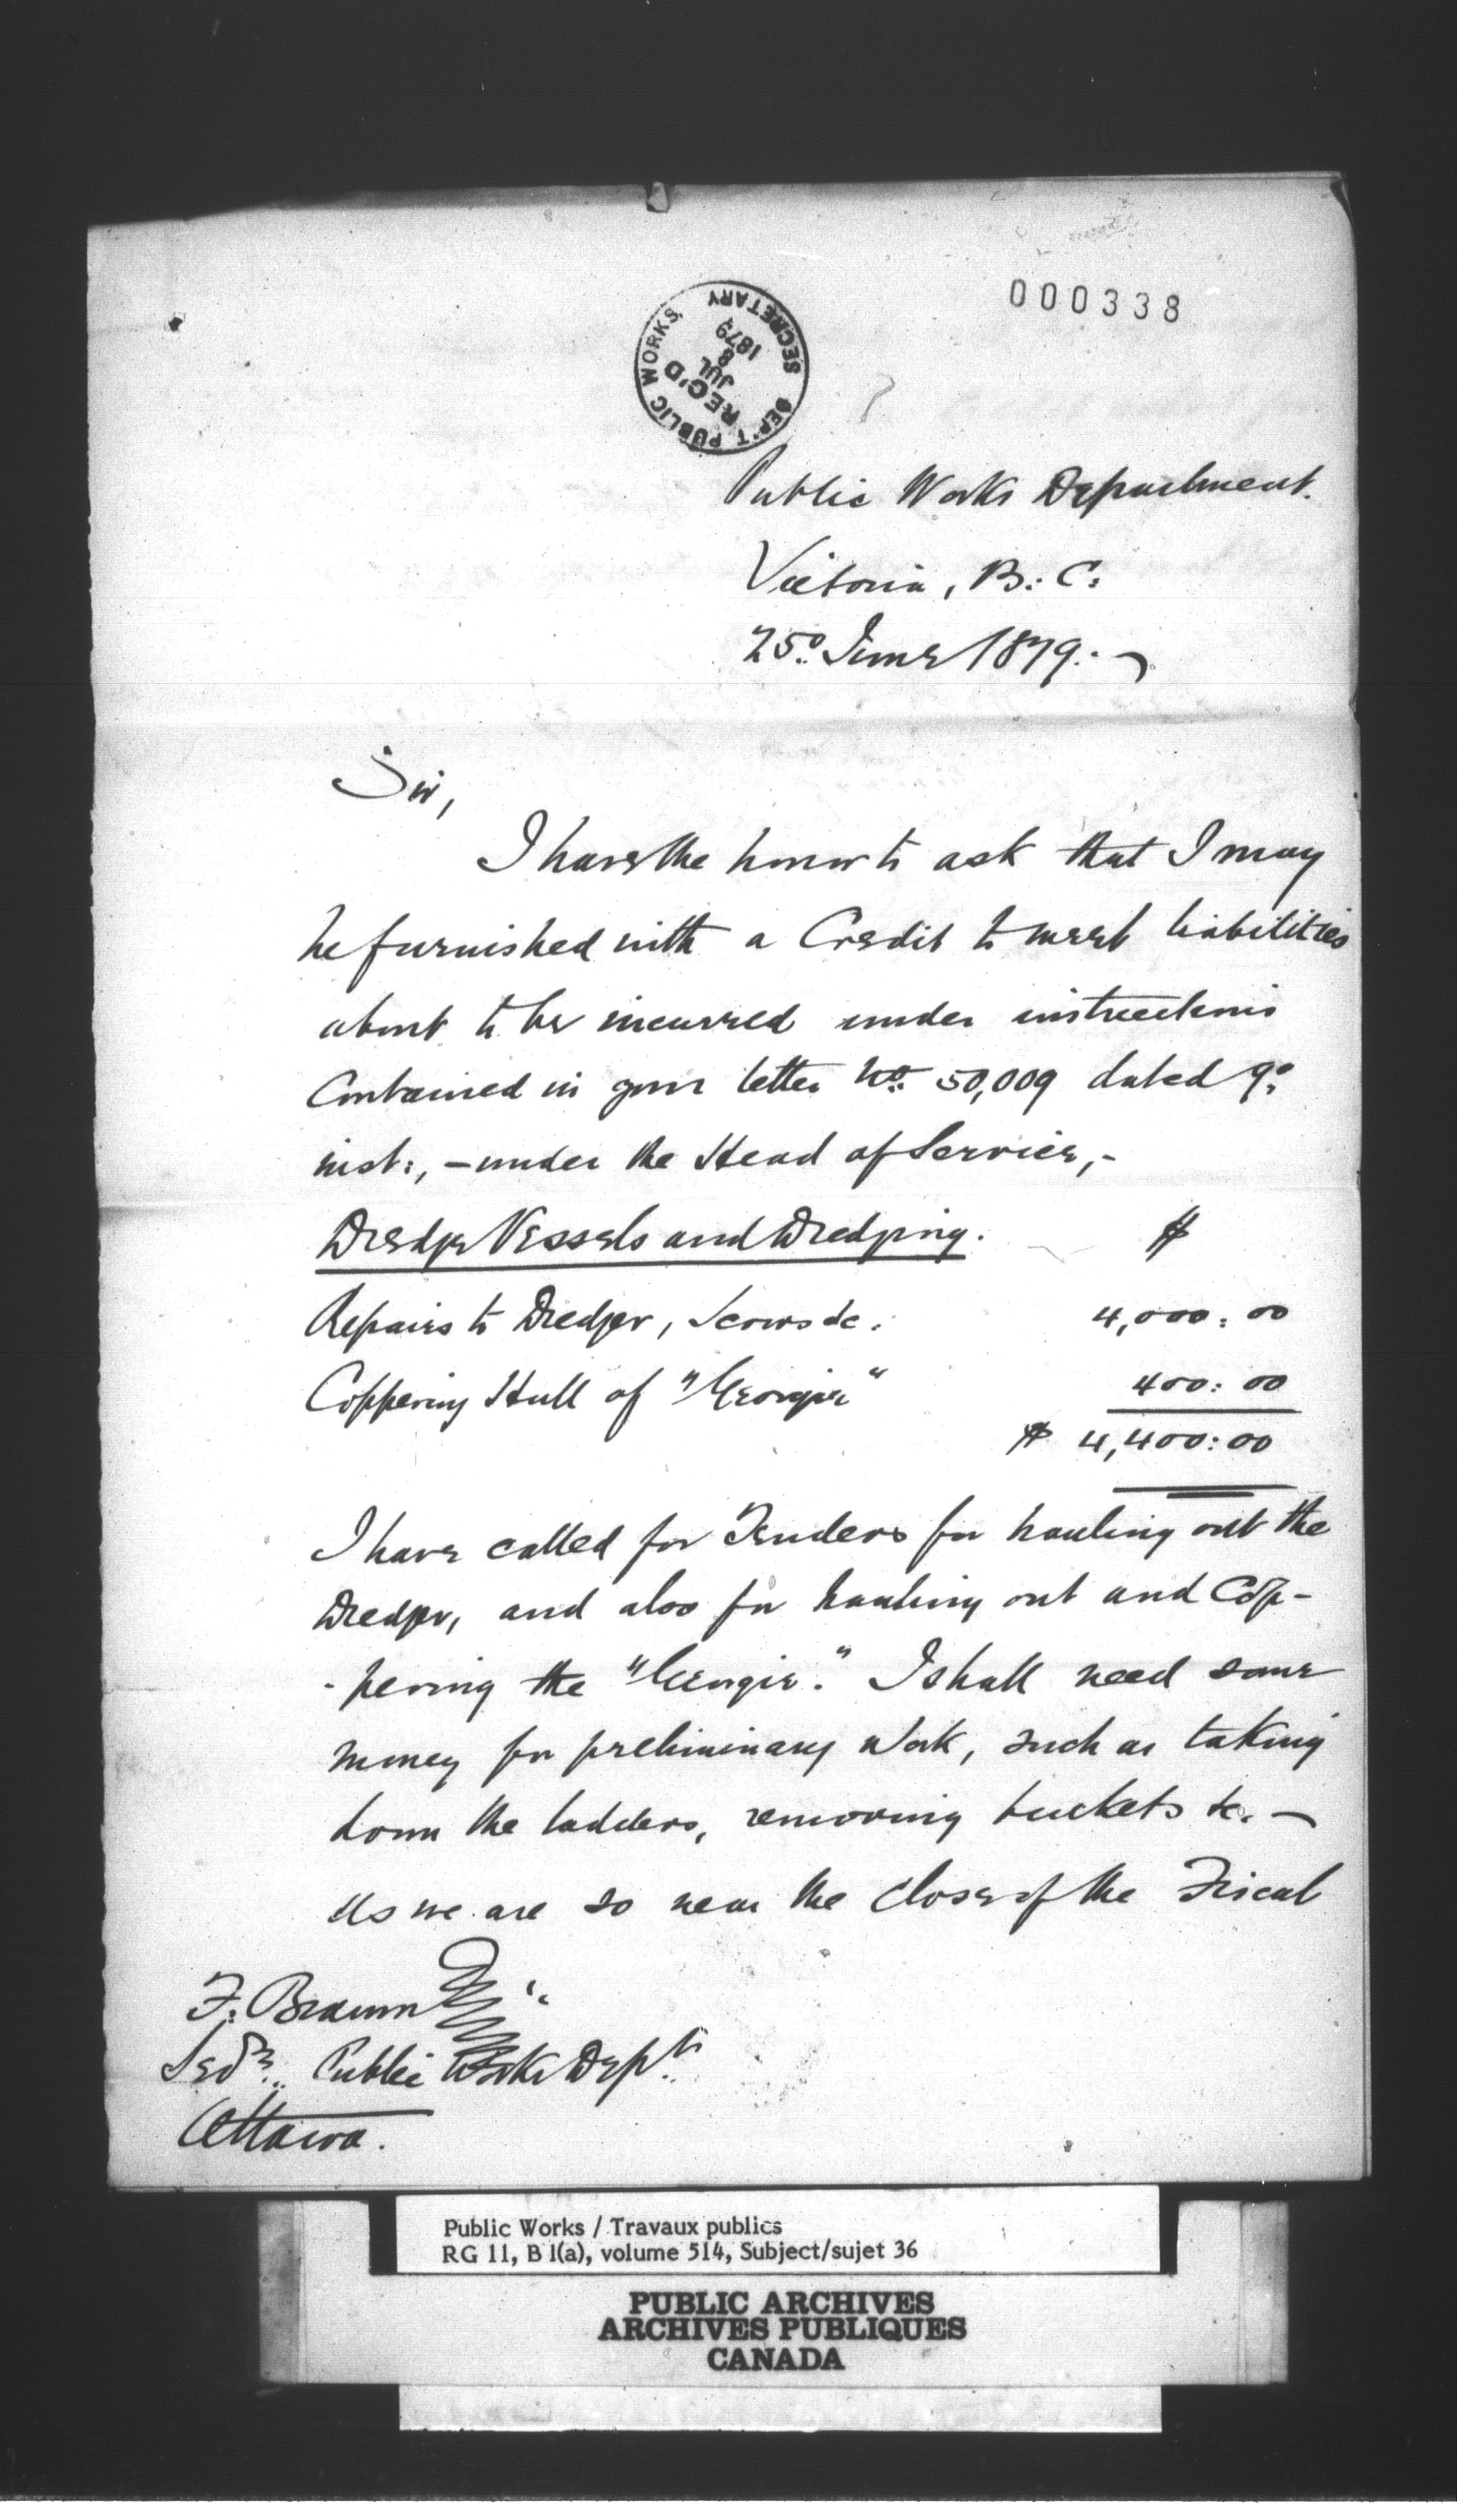 000338
DEP'T PUBLIC WORKS, SECRETARY
REC'D
JUL
8
1879
Public Works Department.
Victoria, B. C.
25º June 1879.
Sir,
I have the honor to ask that I may
be furnished with a Credit to meet liabilities
about to be incurred under instructions
Contained in your letter No. 50,009 dated 9º
inst:, - under the Head of Service, -
Dredge Vessels and Dredging. $
Repairs to Dredger, Scows &c. 4,000:00
Coppering Hull of "Georgie" 400:00
$ 4,400:00
I have called for Tenders for hauling out the
Dredger, and also for hauling out and Cop-
-pering the "Georgie." I shall need some
money for preliminary work, such as taking
down the ladders, removing buckets &c. —
As we are so near the close of the Fiscal
F. Braun Esq
Secy. Public Works Dept.
Ottawa.
Public Works / Travaux publics
RG 11, B 1(a), volume 514, Subject/sujet 36
PUBLIC ARCHIVES
ARCHIVES PUBLIQUES
CANADA